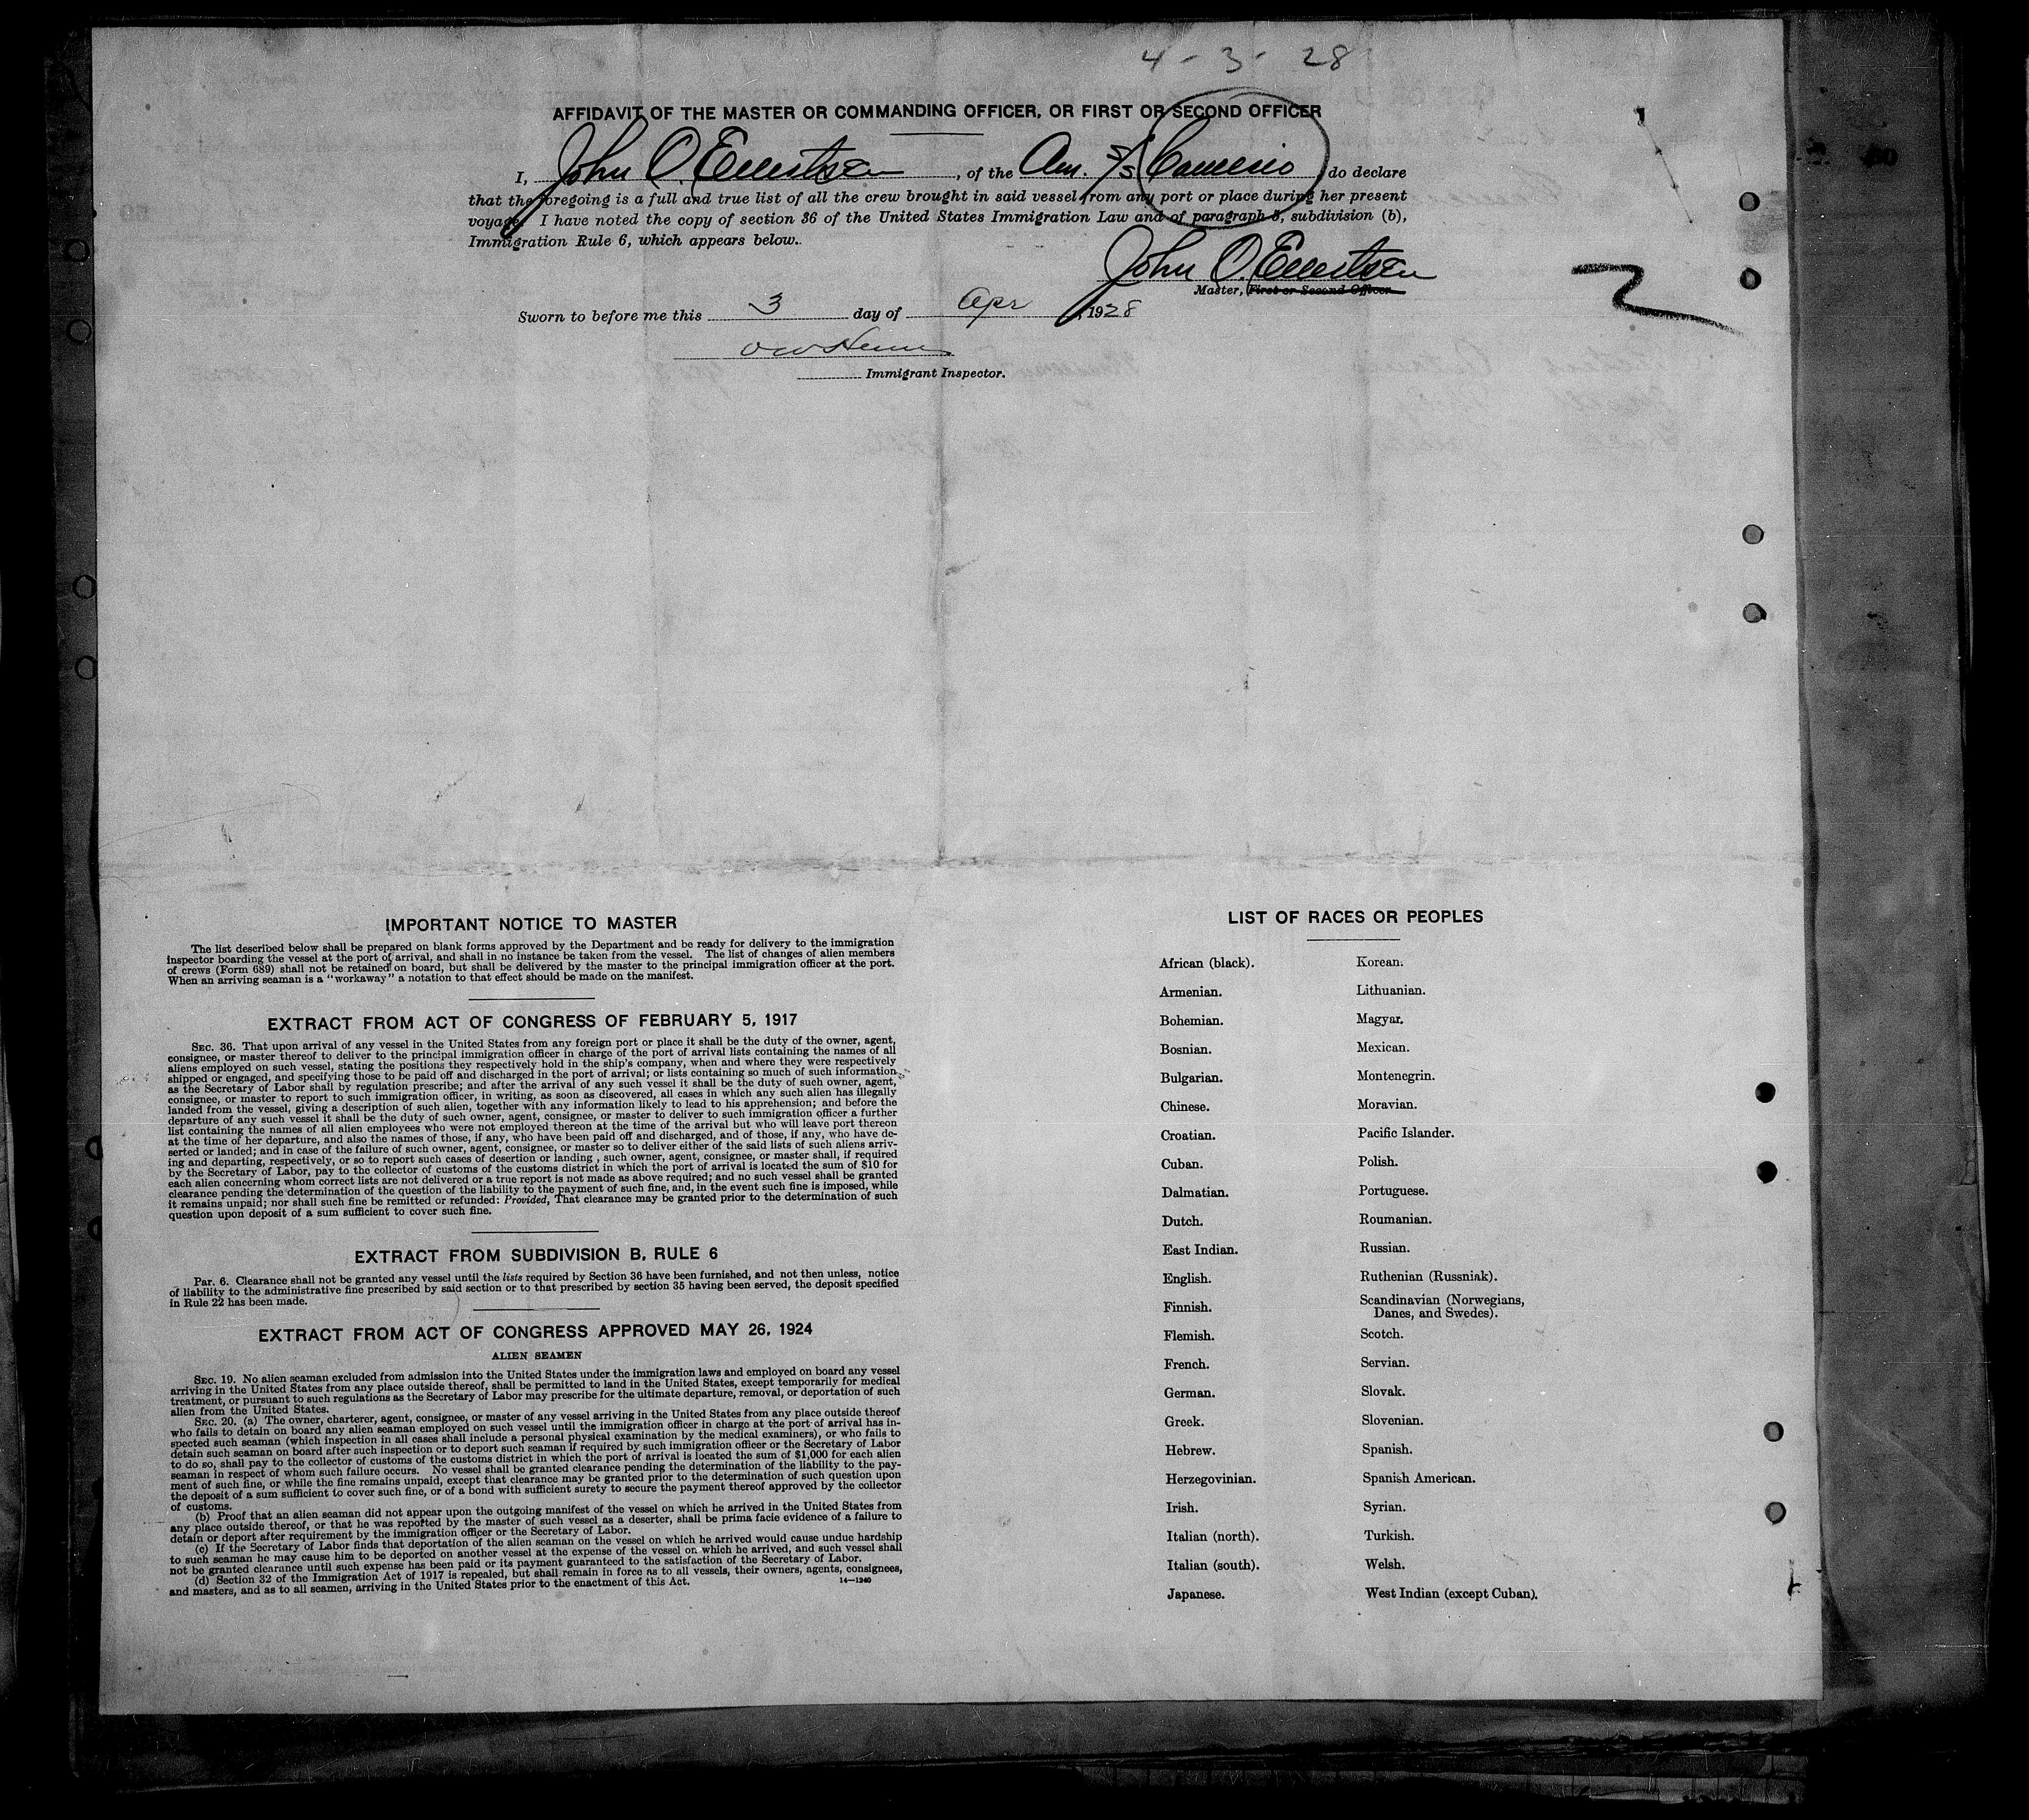 4 - 3 - 28
AFFIDAVIT OF THE MASTER OR COMMANDING OFFICER, OR FIRST OR SECOND OFFICER
I, John O. , of the Am. S/S do declare
that the foregoing is a full and true list of all the crew brought in said vessel from any port or place during her present
voyage. I have noted the copy of section 36 of the United States Immigration Law and of paragraph 5, subdivision (b),
Immigration Rule 6, which appears below.
John O.
Master, First or Second Officer
Sworn to before me this 3 day of Apr , 1928
Immigrant Inspector.
2
IMPORTANT NOTICE TO MASTER
The list described below shall be prepared on blank forms approved by the Department and be ready for delivery to the immigration
inspector boarding the vessel at the port of arrival, and shall in no instance be taken from the vessel. The list of changes of alien members
of crews (Form 689) shall not be retained on board, but shall be delivered by the master to the principal immigration officer at the port.
When an arriving seaman is a "workaway" a notation to that effect should be made on the manifest.
EXTRACT FROM ACT OF CONGRESS OF FEBRUARY 5, 1917
SEC. 36. That upon arrival of any vessel in the United States from any foreign port or place it shall be the duty of the owner, agent,
consignee, or master thereof to deliver to the principal immigration officer in charge of the port of arrival lists containing the names of all
aliens employed on such vessel, stating the positions they respectively hold in the ship's company, when and where they were respectively
shipped or engaged, and specifying those to be paid off and discharged in the port of arrival; or lists containing so much of such information
as the Secretary of Labor shall by regulation prescribe; and after the arrival of any such vessel it shall be the duty of such owner, agent,
consignee, or master to report to such immigration officer, in writing, as soon as discovered, all cases in which any such alien has illegally
landed from the vessel, giving a description of such alien, together with any information likely to lead to his apprehension; and before the
departure of any such vessel it shall be the duty of such owner, agent, consignee, or master to deliver to such immigration officer a further
list containing the names of all alien employees who were not employed thereon at the time of the arrival but who will leave port thereon
at the time of her departure, and also the names of those, if any, who have been paid off and discharged, and of those, if any, who have de-
serted or landed; and in case of the failure of such owner, agent, consignee, or master so to deliver either of the said lists of such aliens arriv-
ing and departing, respectively, or so to report such cases of desertion or landing , such owner, agent, consignee, or master shall, if required
by the Secretary of Labor, pay to the collector of customs of the customs district in which the port of arrival is located the sum of $10 for
each alien concerning whom correct lists are not delivered or a true report is not made as above required; and no such vessel shall be granted
clearance pending the determination of the question of the liability to the payment of such fine, and, in the event such fine is imposed, while
it remains unpaid; nor shall such fine be remitted or refunded: Provided, That clearance may be granted prior to the determination of such
question upon deposit of a sum sufficient to cover such fine.
EXTRACT FROM SUBDIVISION B, RULE 6
Par. 6. Clearance shall not be granted any vessel until the lists required by Section 36 have been furnished, and not then unless, notice
of liability to the administrative fine prescribed by said section or to that prescribed by section 35 having been served, the deposit specified
in Rule 22 has been made.
EXTRACT FROM ACT OF CONGRESS APPROVED MAY 26, 1924
ALIEN SEAMEN
SEC. 19. No alien seaman excluded from admission into the United States under the immigration laws and employed on board any vessel
arriving in the United States from any place outside thereof, shall be permitted to land in the United States, except temporarily for medical
treatment, or pursuant to such regulations as the Secretary of Labor may prescribe for the ultimate departure, removal, or deportation of such
alien from the United States.
SEC. 20. (a) The owner, charterer, agent, consignee, or master of any vessel arriving in the United States from any place outside thereof
who fails to detain on board any alien seaman employed on such vessel until the immigration officer in charge at the port of arrival has in-
spected such seaman (which inspection in all cases shall include a personal physical examination by the medical examiners), or who fails to
detain such seaman on board after such inspection or to deport such seaman if required by such immigration officer or the Secretary of Labor
to do so, shall pay to the collector of customs of the customs district in which the port of arrival is located the sum of $1,000 for each alien
seaman in respect of whom such failure occurs. No vessel shall be granted clearance pending the determination of the liability to the pay-
ment of such fine, or while the fine remains unpaid, except that clearance may be granted prior to the determination of such question upon
the deposit of a sum sufficient to cover such fine, or of a bond with sufficient surety to secure the payment thereof approved by the collector
of customs.
(b) Proof that an alien seaman did not appear upon the outgoing manifest of the vessel on which he arrived in the United States from
any place outside thereof, or that he was reported by the master of such vessel as a deserter, shall be prima facie evidence of a failure to
detain or deport after requirement by the immigration officer or the Secretary of Labor.
(c) If the Secretary of Labor finds that deportation of the alien seaman on the vessel on which he arrived would cause undue hardship
to such seaman he may cause him to be deported on another vessel at the expense of the vessel on which he arrived, and such vessel shall
not be granted clearance until such expense has been paid or its payment guaranteed to the satisfaction of the Secretary of Labor.
(d) Section 32 of the Immigration Act of 1917 is repealed, but shall remain in force as to all vessels, their owners, agents, consignees,
and masters, and as to all seamen, arriving in the United States prior to the enactment of this Act.
14—1240
LIST OF RACES OR PEOPLES
African (black).
Armenian.
Bohemian.
Bosnian.
Bulgarian.
Chinese.
Croatian.
Cuban.
Dalmatian.
Dutch.
East Indian.
English.
Finnish.
Flemish.
French.
German.
Greek.
Hebrew.
Herzegovinian.
Irish.
Italian (north).
Italian (south).
Japanese.
Korean.
Lithuanian.
Magyar.
Mexican.
Montenegrin.
Moravian.
Pacific Islander.
Polish.
Portuguese.
Roumanian.
Russian.
Ruthenian (Russniak).
Scandinavian (Norwegians,
Danes, and Swedes).
Scotch.
Servian.
Slovak.
Slovenian.
Spanish.
Spanish American.
Syrian.
Turkish.
Welsh.
West Indian (except Cuban).